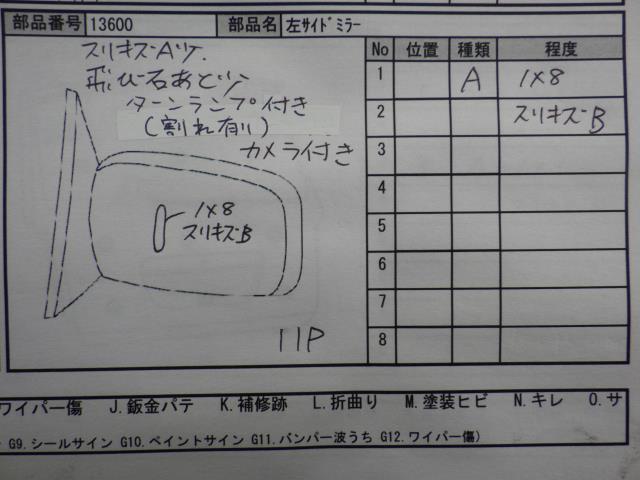 部品番号 13600 部品名 左サイドミラー
スリキズA少.
飛び石あと少
ターンランプ付き
(割れ有り)
カメラ付き
1×8
スリキズB
11P
No 位置 種類 程度
1 A 1×8
2 スリキズB
3
4
5
6
7
8
ワイパー傷 J.鈑金パテ K.補修跡 L.折曲り M.塗装ヒビ N.キレ O.サ
G9.シールサイン G10.ペイントサイン G11.バンパー波うち G12.ワイパー傷)